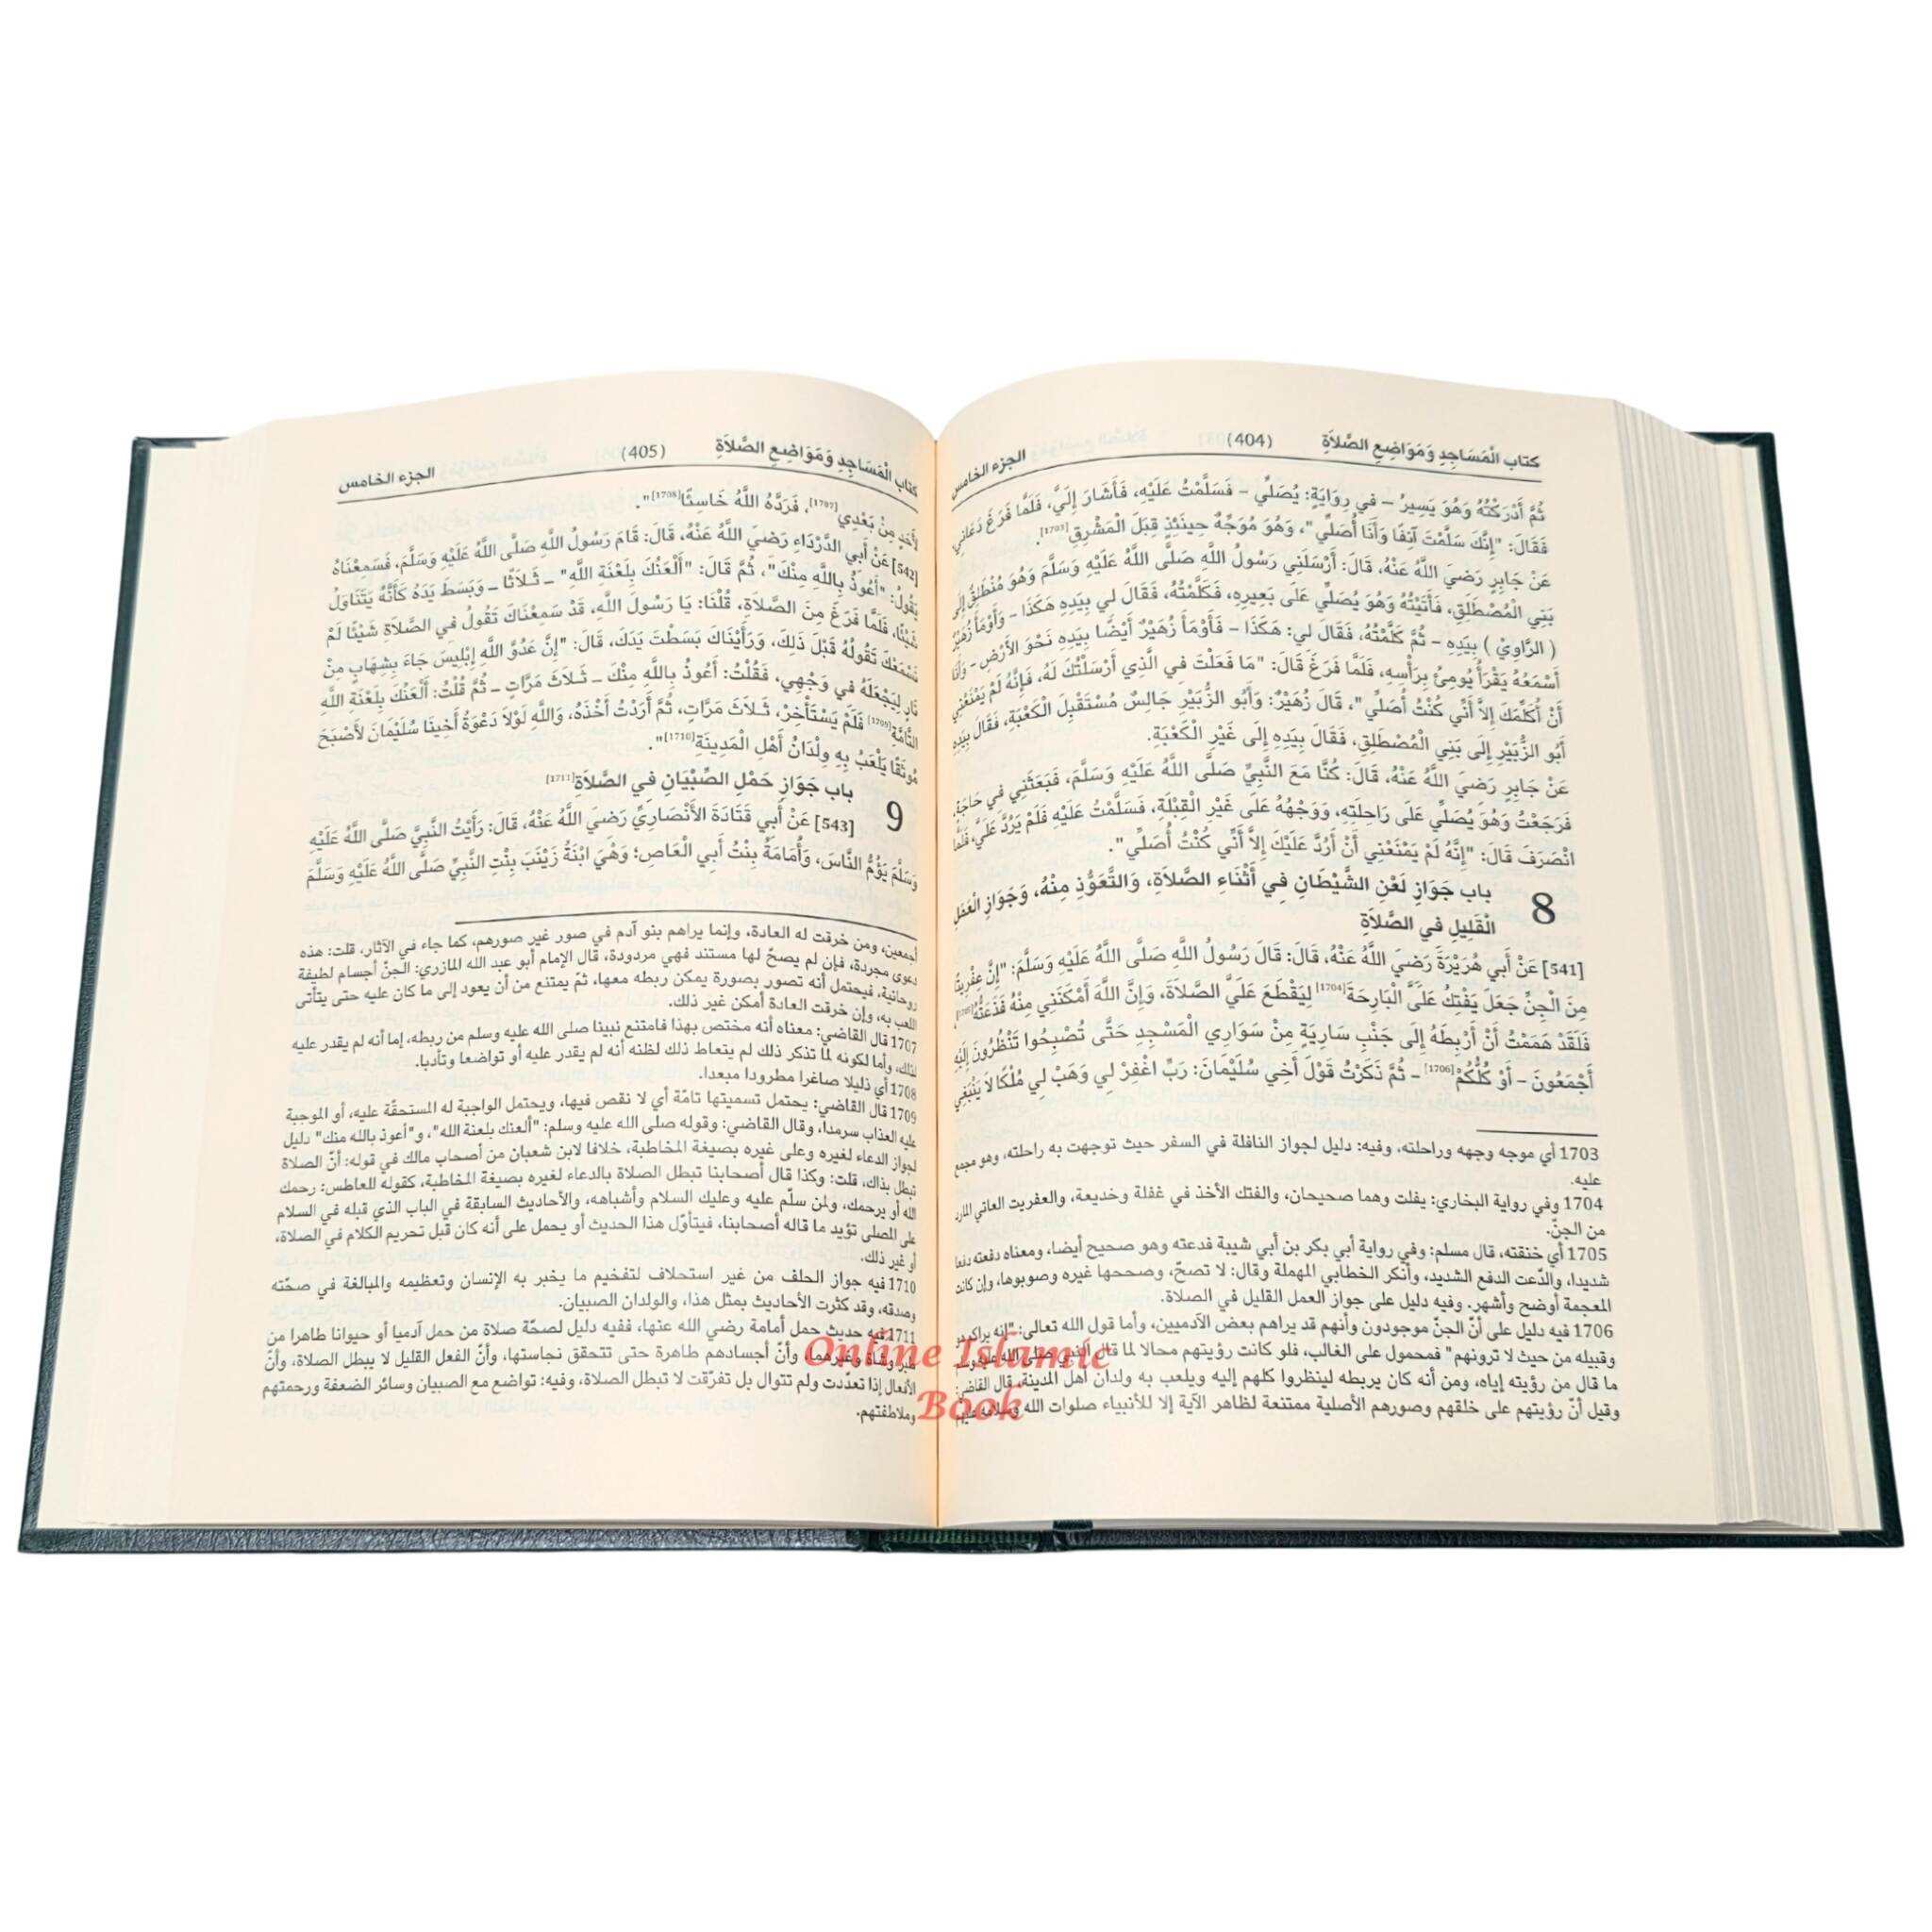 كتاب الْمَسَاجِدِ وَمَوَاضِعِ الصَّلاَةِ (404) الجزء الخامس
ثُمَّ أَدْرَكْتُهُ وَهُوَ يَسِيرُ – في رِوَايَةٍ: يُصَلِّي – فَسَلَّمْتُ عَلَيْهِ، فَأَشَارَ إِلَيَّ، فَلَمَّا فَرَغَ دَعَانِي
فَقَالَ: "إِنَّكَ سَلَّمْتَ آنِفًا وَأَنَا أُصَلِّي"، وَهُوَ مُوَجِّهٌ حِينَئِذٍ قِبَلَ الْمَشْرِقِ[1703].
عَنْ جَابِرٍ رَضيَ اللَّهُ عَنْهُ، قَالَ: أَرْسَلَنِي رَسُولُ اللَّهِ صَلَّى اللَّهُ عَلَيْهِ وَسَلَّمَ وَهُوَ مُنْطَلِقٌ إِلَى
بَنِي الْمُصْطَلِقِ، فَأَتَيْتُهُ وَهُوَ يُصَلِّي عَلَى بَعِيرِهِ، فَكَلَّمْتُهُ، فَقَالَ لي بِيَدِهِ هَكَذَا – وَأَوْمَأَ زُهَيْرٌ
( الرَّاوِيْ ) بِيَدِهِ – ثُمَّ كَلَّمْتُهُ، فَقَالَ لي: هَكَذَا – فَأَوْمَأَ زُهَيْرٌ أَيْضًا بِيَدِهِ نَحْوَ الأَرْضِ – وَأَنَا
أَسْمَعُهُ يَقْرَأُ يُومِئُ بِرَأْسِهِ، فَلَمَّا فَرَغَ قَالَ: "مَا فَعَلْتَ فِي الَّذِي أَرْسَلْتُكَ لَهُ، فَإِنَّهُ لَمْ يَمْنَعْنِي
أَنْ أُكَلِّمَكَ إِلاَّ أَنِّي كُنْتُ أُصَلِّي"، قَالَ زُهَيْرٌ: وَأَبُو الزُّبَيْرِ جَالِسٌ مُسْتَقْبِلَ الْكَعْبَةِ، فَقَالَ بِيَدِهِ
أَبُو الزُّبَيْرِ إِلَى بَنِي الْمُصْطَلِقِ، فَقَالَ بِيَدِهِ إِلَى غَيْرِ الْكَعْبَةِ.
عَنْ جَابِرٍ رَضيَ اللَّهُ عَنْهُ، قَالَ: كُنَّا مَعَ النَّبِيِّ صَلَّى اللَّهُ عَلَيْهِ وَسَلَّمَ، فَبَعَثَنِي فِي حَاجَةٍ
فَرَجَعْتُ وَهُوَ يُصَلِّي عَلَى رَاحِلَتِهِ، وَوَجْهُهُ عَلَى غَيْرِ الْقِبْلَةِ، فَسَلَّمْتُ عَلَيْهِ فَلَمْ يَرُدَّ عَلَيَّ، فَلَمَّا
انْصَرَفَ قَالَ: "إِنَّهُ لَمْ يَمْنَعْنِي أَنْ أَرُدَّ عَلَيْكَ إِلاَّ أَنِّي كُنْتُ أُصَلِّي".
8 باب جَوَازِ لَعْنِ الشَّيْطَانِ فِي أَثْنَاءِ الصَّلاَةِ، وَالتَّعَوُّذِ مِنْهُ، وَجَوَازِ الْعَمَلِ
الْقَلِيلِ في الصَّلاَةِ
[541] عَنْ أَبي هُرَيْرَةَ رَضيَ اللَّهُ عَنْهُ، قَالَ: قَالَ رَسُولُ اللَّهِ صَلَّى اللَّهُ عَلَيْهِ وَسَلَّمَ: "إِنَّ عِفْرِيتًا
مِنَ الْجِنِّ جَعَلَ يَفْتِكُ عَلَيَّ الْبَارِحَةَ[1704] لِيَقْطَعَ عَلَيَّ الصَّلاَةَ، وَإِنَّ اللَّهَ أَمْكَنَنِي مِنْهُ فَذَعَتُّهُ[1705]
فَلَقَدْ هَمَمْتُ أَنْ أَرْبِطَهُ إِلَى جَنْبِ سَارِيَةٍ مِنْ سَوَارِي الْمَسْجِدِ حَتَّى تُصْبِحُوا تَنْظُرُونَ إِلَيْهِ
أَجْمَعُونَ – أَوْ كُلُّكُمْ[1706] – ثُمَّ ذَكَرْتُ قَوْلَ أَخِي سُلَيْمَانَ: رَبِّ اغْفِرْ لِي وَهَبْ لِي مُلْكًا لاَ يَنْبَغِي
1703 أي موجه وجهه وراحلته، وفيه: دليل لجواز النافلة في السفر حيث توجهت به راحلته، وهو مجمع
عليه.
1704 وفي رواية البخاري: يفلت وهما صحيحان، والفتك الأخذ في غفلة وخديعة، والعفريت العاتي المارد
من الجنّ.
1705 أي خنقته، قال مسلم: وفي رواية أبي بكر بن أبي شيبة فدعته وهو صحيح أيضا، ومعناه دفعته دفعا
شديدا، والدّعت الدفع الشديد، وأنكر الخطابي المهملة وقال: لا تصحّ، وصححها غيره وصوبوها، وإن كانت
المعجمة أوضح وأشهر. وفيه دليل على جواز العمل القليل في الصلاة.
1706 فيه دليل على أنّ الجنّ موجودون وأنهم قد يراهم بعض الآدميين، وأما قول الله تعالى: "إنه يراكم هو
وقبيله من حيث لا ترونهم" فمحمول على الغالب، فلو كانت رؤيتهم محالا لما قال النبي صلى الله عليه وسلم
ما قال من رؤيته إياه، ومن أنه كان يربطه لينظروا كلهم إليه ويلعب به ولدان أهل المدينة، قال القاضي:
وقيل أنّ رؤيتهم على خلقهم وصورهم الأصلية ممتنعة لظاهر الآية إلا للأنبياء صلوات الله وسلامه عليهم
كتاب الْمَسَاجِدِ وَمَوَاضِعِ الصَّلاَةِ (405) الجزء الخامس
لأَحَدٍ مِنْ بَعْدِي[1707]، فَرَدَّهُ اللَّهُ خَاسِئًا[1708]".
[542] عَنْ أَبي الدَّرْدَاءِ رَضيَ اللَّهُ عَنْهُ، قَالَ: قَامَ رَسُولُ اللَّهِ صَلَّى اللَّهُ عَلَيْهِ وَسَلَّمَ، فَسَمِعْنَاهُ
يَقُولُ: "أَعُوذُ بِاللَّهِ مِنْكَ"، ثُمَّ قَالَ: "أَلْعَنُكَ بِلَعْنَةِ اللَّهِ" – ثَلاَثًا – وَبَسَطَ يَدَهُ كَأَنَّهُ يَتَنَاوَلُ
شَيْئًا، فَلَمَّا فَرَغَ مِنَ الصَّلاَةِ، قُلْنَا: يَا رَسُولَ اللَّهِ، قَدْ سَمِعْنَاكَ تَقُولُ في الصَّلاَةِ شَيْئًا لَمْ
نَسْمَعْكَ تَقُولُهُ قَبْلَ ذَلِكَ، وَرَأَيْنَاكَ بَسَطْتَ يَدَكَ، قَالَ: "إِنَّ عَدُوَّ اللَّهِ إِبْلِيسَ جَاءَ بِشِهَابٍ مِنْ
نَارٍ لِيَجْعَلَهُ في وَجْهِي، فَقُلْتُ: أَعُوذُ بِاللَّهِ مِنْكَ – ثَلاَثَ مَرَّاتٍ – ثُمَّ قُلْتُ: أَلْعَنُكَ بِلَعْنَةِ اللَّهِ
التَّامَّةِ[1709] فَلَمْ يَسْتَأْخِرْ، ثَلاَثَ مَرَّاتٍ، ثُمَّ أَرَدْتُ أَخْذَهُ، وَاللَّهِ لَوْلاَ دَعْوَةُ أَخِينَا سُلَيْمَانَ لأَصْبَحَ
مُوثَقًا يَلْعَبُ بِهِ وِلْدَانُ أَهْلِ الْمَدِينَةِ[1710]".
9 باب جَوَازِ حَمْلِ الصِّبْيَانِ فِي الصَّلاَةِ[1711]
[543] عَنْ أَبي قَتَادَةَ الأَنْصَارِيِّ رَضيَ اللَّهُ عَنْهُ، قَالَ: رَأَيْتُ النَّبِيَّ صَلَّى اللَّهُ عَلَيْهِ
وَسَلَّمَ يَؤُمُّ النَّاسَ، وَأُمَامَةُ بِنْتُ أَبِي الْعَاصِ؛ وَهْيَ ابْنَةُ زَيْنَبَ بِنْتِ النَّبِيِّ صَلَّى اللَّهُ عَلَيْهِ وَسَلَّمَ
أجمعين، ومن خرقت له العادة، وإنما يراهم بنو آدم في صور غير صورهم، كما جاء في الآثار. قلت: هذه
دعوى مجردة، فإن لم يصحّ لها مستند فهي مردودة، قال الإمام أبو عبد الله المازري: الجنّ أجسام لطيفة
روحانية، فيحتمل أنه تصور بصورة يمكن ربطه معها، ثمّ يمتنع من أن يعود إلى ما كان عليه حتى يتأتى
اللعب به، وإن خرقت العادة أمكن غير ذلك.
1707 قال القاضي: معناه أنه مختص بهذا فامتنع نبينا صلى الله عليه وسلم من ربطه، إما أنه لم يقدر عليه
لذلك، وأما لكونه لمّا تذكر ذلك لم يتعاط ذلك لظنه أنه لم يقدر عليه أو تواضعا وتأدبا.
1708 أي ذليلا صاغرا مطرودا مبعدا.
1709 قال القاضي: يحتمل تسميتها تامّة أي لا نقص فيها، ويحتمل الواجبة له المستحقّة عليه، أو الموجبة
عليه العذاب سرمدا، وقال القاضي: وقوله صلى الله عليه وسلم: "ألعنك بلعنة الله"، و"أعوذ بالله منك" دليل
لجواز الدعاء لغيره وعلى غيره بصيغة المخاطبة، خلافا لابن شعبان من أصحاب مالك في قوله: أنّ الصلاة
تبطل بذاك، قلت: وكذا قال أصحابنا تبطل الصلاة بالدعاء لغيره بصيغة المخاطبة، كقوله للعاطس: رحمك
الله أو يرحمك، ولمن سلّم عليه وعليك السلام وأشباهه، والأحاديث السابقة في الباب الذي قبله في السلام
على المصلى تؤيد ما قاله أصحابنا، فيتأوّل هذا الحديث أو يحمل على أنه كان قبل تحريم الكلام في الصلاة،
أو غير ذلك.
1710 فيه جواز الحلف من غير استحلاف لتفخيم ما يخبر به الإنسان وتعظيمه والمبالغة في صحّته
وصدقه، وقد كثرت الأحاديث بمثل هذا، والولدان الصبيان.
1711 فيه حديث حمل أمامة رضي الله عنها، ففيه دليل لصحّة صلاة من حمل آدميا أو حيوانا طاهرا من
طير وشاة وغيرهما، وأنّ أجسادهم طاهرة حتى تتحقق نجاستها، وأنّ الفعل القليل لا يبطل الصلاة، وأنّ
الأفعال إذا تعدّدت ولم تتوال بل تفرّقت لا تبطل الصلاة، وفيه: تواضع مع الصبيان وسائر الضعفة ورحمتهم
وملاطفتهم.
Online Islamic
Book